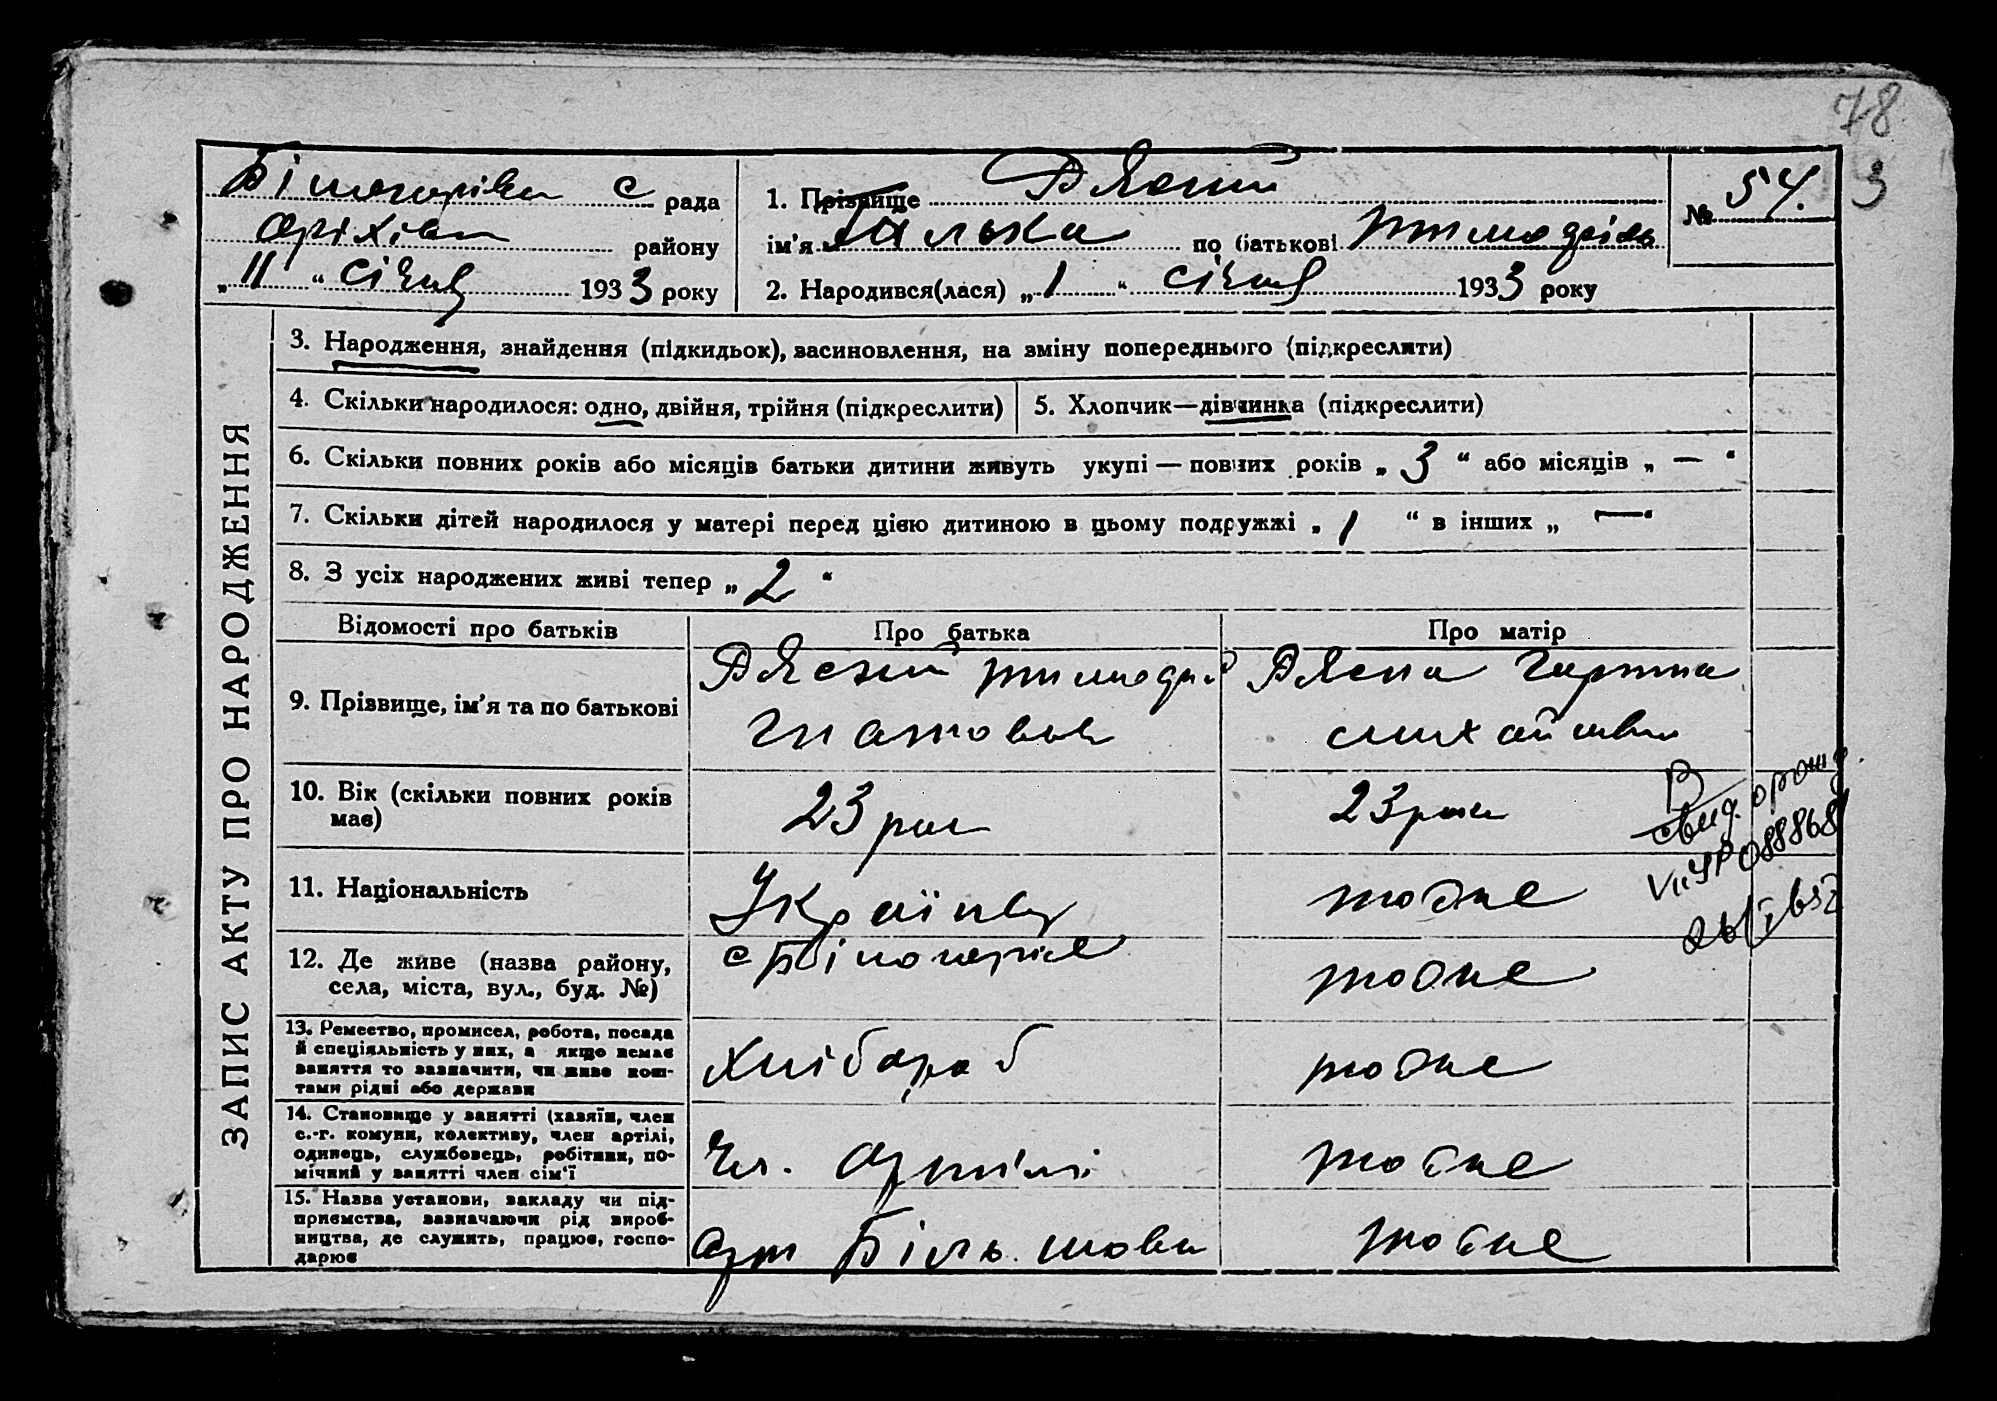 78
3
Білогорівка с рада
Оріхівськ району
„ 11 “ січня 1933 року
1. Прізвище Рясний
ім'я Галька по батькові Тимофіївн
2. Народився(лася) „ 1 “ січня 1933 року
№ 54.
ЗАПИС АКТУ ПРО НАРОДЖЕННЯ
3. Народження, знайдення (підкидьок), засиновлення, на зміну попереднього (підкреслити)
4. Скільки народилося: одно, двійня, трійня (підкреслити)
5. Хлопчик—дівчинка (підкреслити)
6. Скільки повних років або місяців батьки дитини живуть укупі — повних років „ 3 “ або місяців „ — “
7. Скільки дітей народилося у матері перед цією дитиною в цьому подружжі „ 1 “ в інших „ — “
8. З усіх народжених живі тепер „ 2 “
Відомості про батьків
Про батька
Про матір
9. Прізвище, ім'я та по батькові
Рясний Тимофій
Гнатович
Рясна
Михайлівн
10. Вік (скільки повних років
має)
23 рок
23 роки
11. Національність
Українец
тосне
12. Де живе (назва району,
села, міста, вул., буд. №)
с
тосне
13. Ремество, промисел, робота, посада
й спеціяльність у них, а якщо немає
заняття то зазначити, чи живе кош-
тами рідні або держави
Хлібороб
тосне
14. Становище у занятті (хазяїн, член
с.-г. комуни, колективу, член артілі,
одинець, службовець, робітник, по-
мічний у занятті член сім'ї
Чл. Артілі
тосне
15. Назва установи, закладу чи під-
приємства, зазначаючи рід вироб-
ництва, де служить, працює, госпо-
дарює
Арт
тосне
свид. о рожд
088868